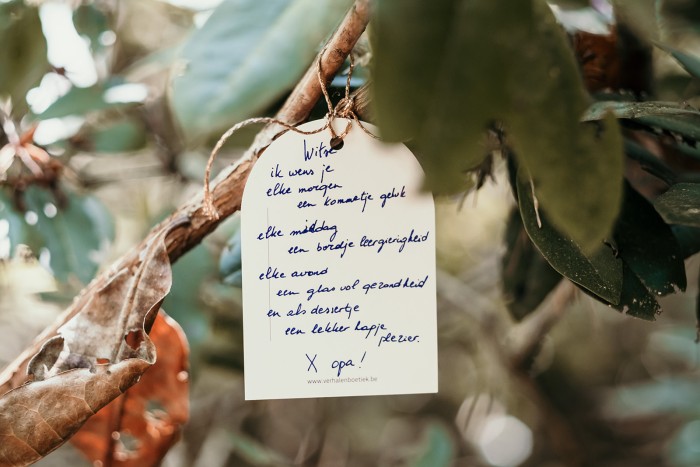 Witse
ik wens je
elke morgen
een kommetje geluk
elke middag
een bordje leergierigheid
elke avond
een glas vol gezondheid
en als dessertje
een lekker hapje
plezier.
X opa!
www.verhalenboetiek.be